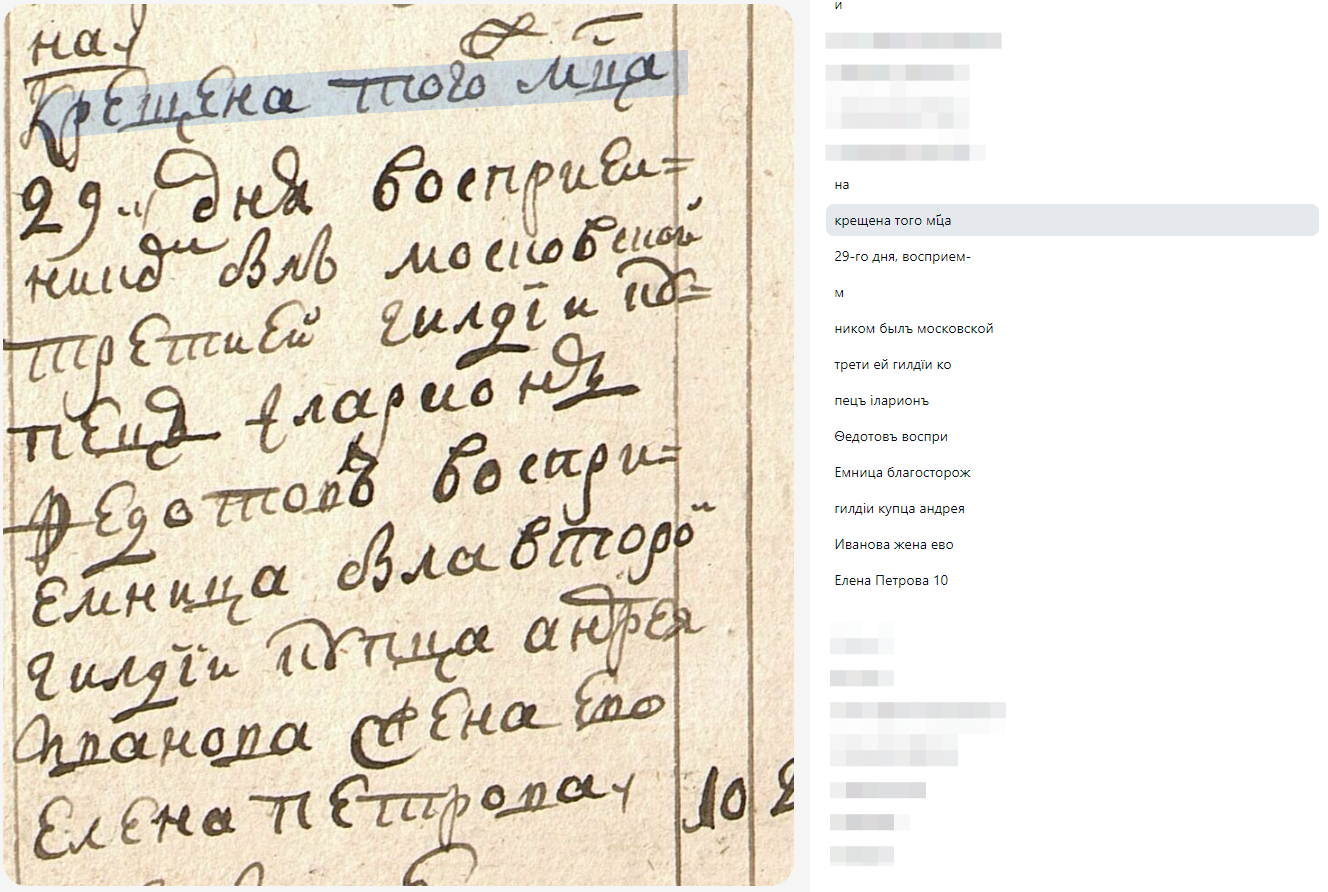 на
крещена того мц҃а
29. дня восприем=
никъ былъ московской
третией гилдїи ку=
пецъ iларионъ
Ѳедотовъ воспри=
емница была второй
гилдїи купца андрея
иванова жена ево
елена петрова 10
и
на
крещена того мц҃а
29-го дня, восприем-
м
ником былъ московской
трети ей гилдїи ко
пецъ iларионъ
Ѳедотовъ воспри
Емница благосторож
гилдіи купца андрея
Иванова жена ево
Елена Петрова 10